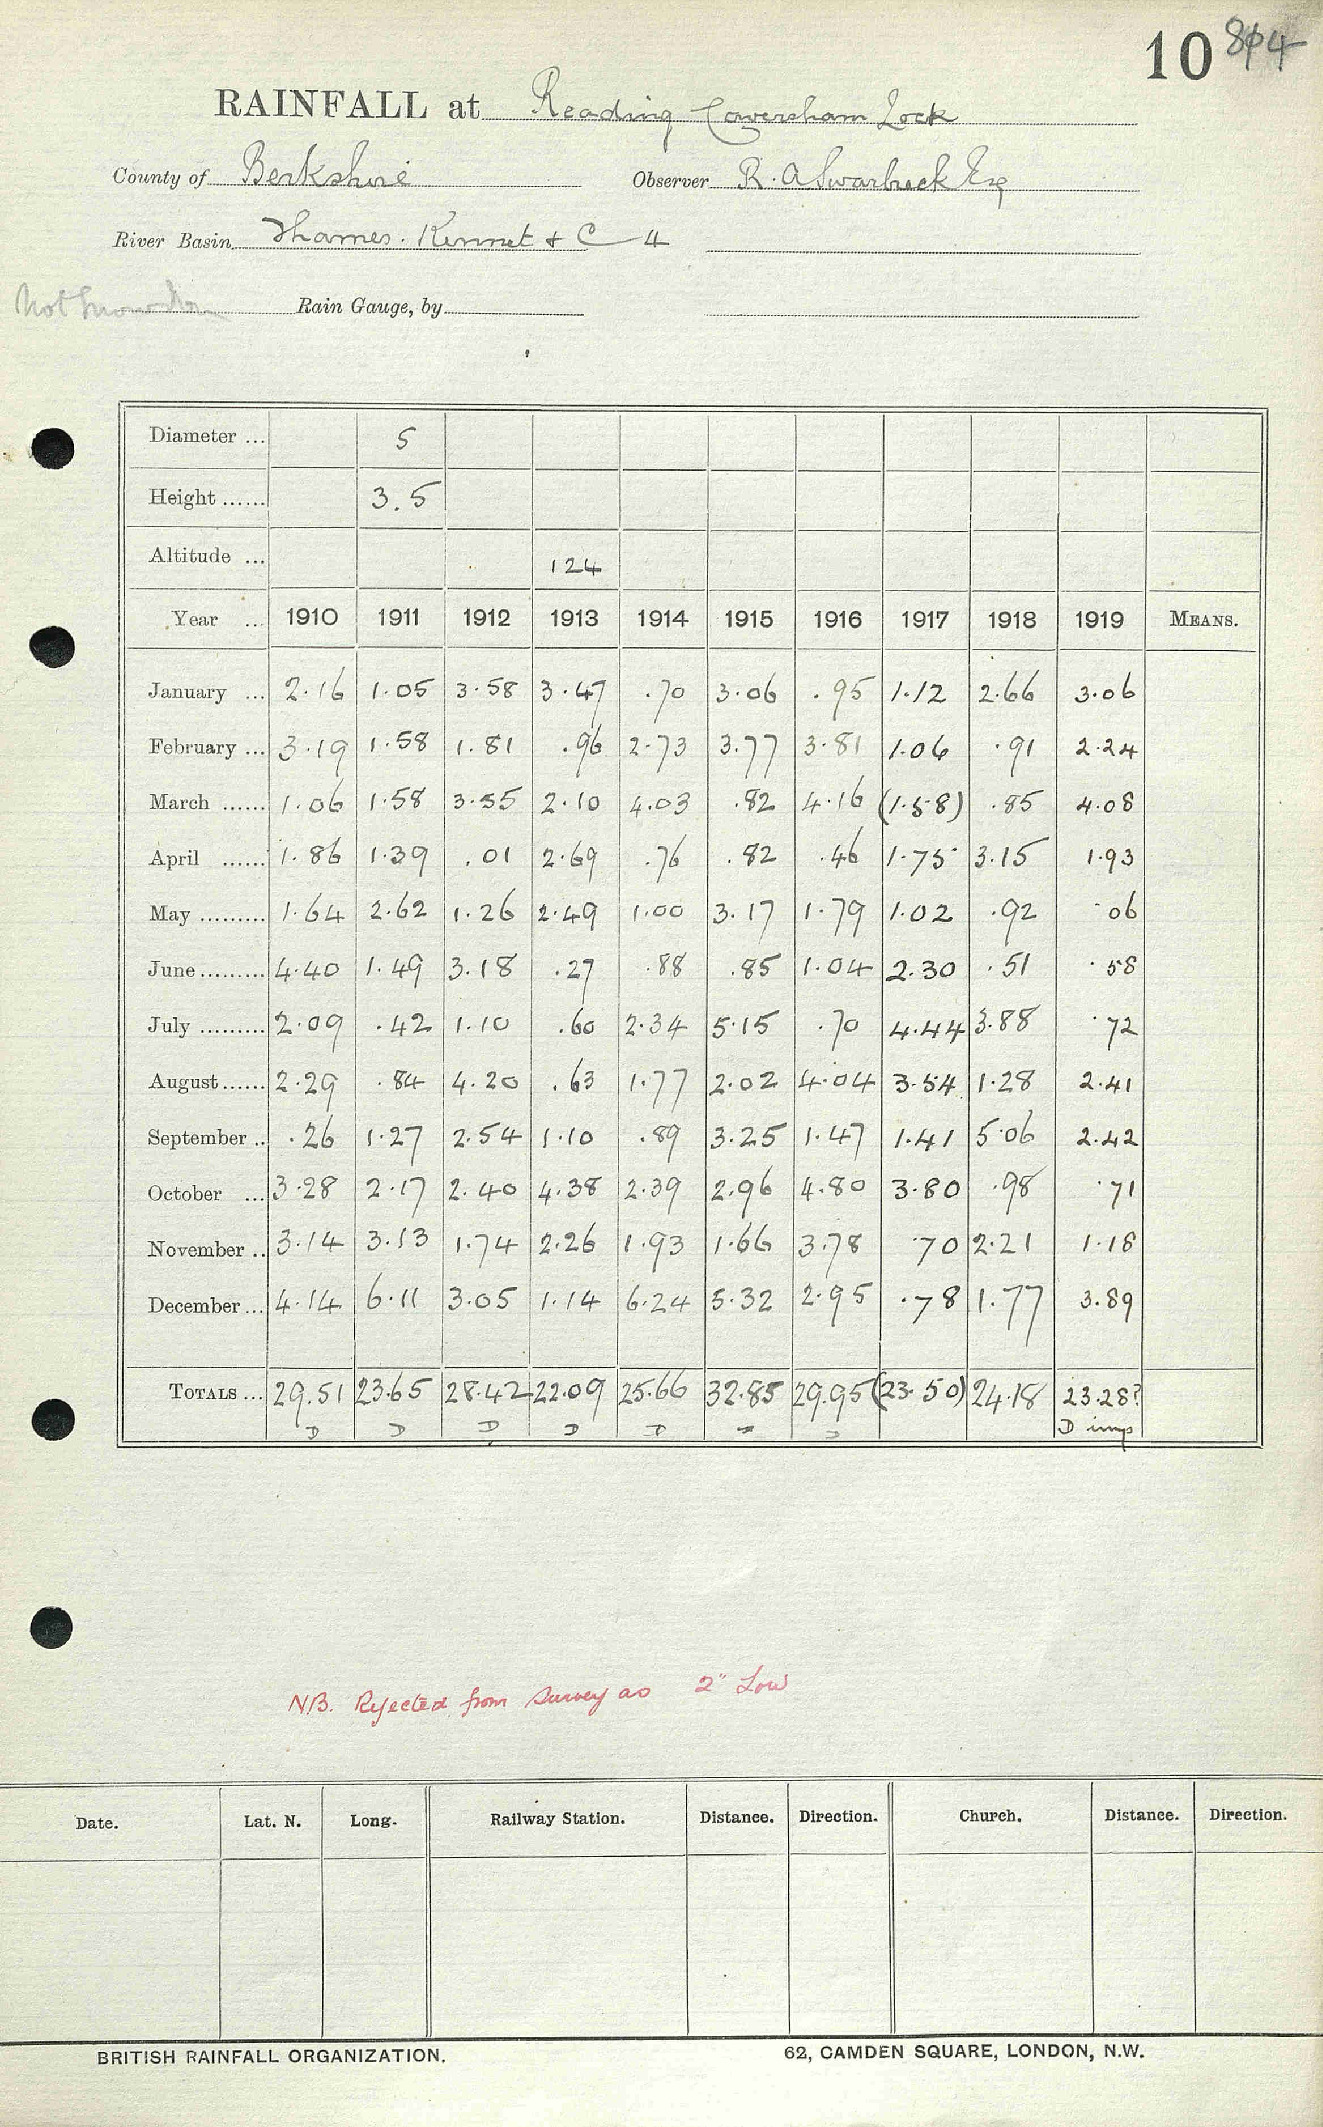 10 814
RAINFALL at Reading Caversham Lock
County of Berkshire Observer R. A Swarbrick Esq
River Basin Thames. Kennet & C 4
Rain Gauge, by
Diameter ... 5
Height ...... 3.5
Altitude ... 124
Year ... 1910 1911 1912 1913 1914 1915 1916 1917 1918 1919 MEANS.
January ... 2.16 1.05 3.58 3.47 .70 3.06 .95 1.12 2.66 3.06
February ... 3.19 1.58 1.81 .96 2.73 3.77 3.81 1.06 .91 2.24
March ...... 1.06 1.58 3.55 2.10 4.03 .82 4.16 (1.58) .85 4.08
April ...... 1.86 1.39 .01 2.69 .76 .82 .46 1.75 3.15 1.93
May ......... 1.64 2.62 1.26 2.49 1.00 3.17 1.79 1.02 .92 .06
June ......... 4.40 1.49 3.18 .27 .88 .85 1.04 2.30 .51 .58
July ......... 2.09 .42 1.10 .60 2.34 5.15 .70 4.44 3.88 .72
August ...... 2.29 .84 4.20 .63 1.77 2.02 4.04 3.54 1.28 2.41
September .. .26 1.27 2.54 1.10 .89 3.25 1.47 1.41 5.06 2.42
October ... 3.28 2.17 2.40 4.38 2.39 2.96 4.80 3.80 .98 .71
November .. 3.14 3.13 1.74 2.26 1.93 1.66 3.78 .70 2.21 1.18
December ... 4.14 6.11 3.05 1.14 6.24 5.32 2.95 .78 1.77 3.89
TOTALS ... 29.51 23.65 28.42 22.09 25.66 32.85 29.95 (23.50) 24.18 23.28?
D D D D D D D imp
NB. Rejected from Survey as 2" Low
Date. Lat. N. Long. Railway Station. Distance. Direction. Church. Distance. Direction.
BRITISH RAINFALL ORGANIZATION. 62, CAMDEN SQUARE, LONDON, N.W.